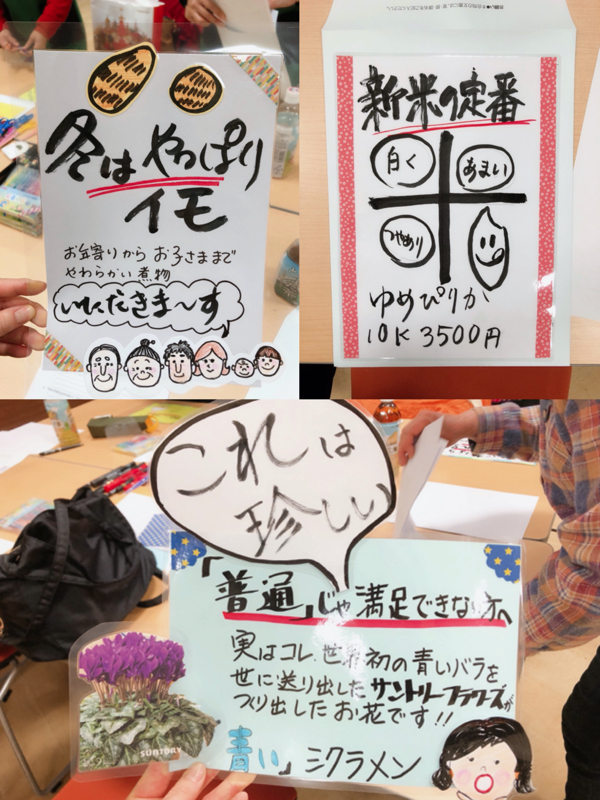 冬は やっぱり
イモ
お年寄りから お子さままで
やわらかい 煮物
いただきま～す
新米の定番
白く
あまい
つやあり
ゆめぴりか
10K 3500円
これは
珍しい
「普通」じゃ満足できない方へ
実はコレ、世界初の青いバラを
世に送り出したサントリーフラワーズが
つくり出したお花です!!
「青い」シクラメン
SUNTORY